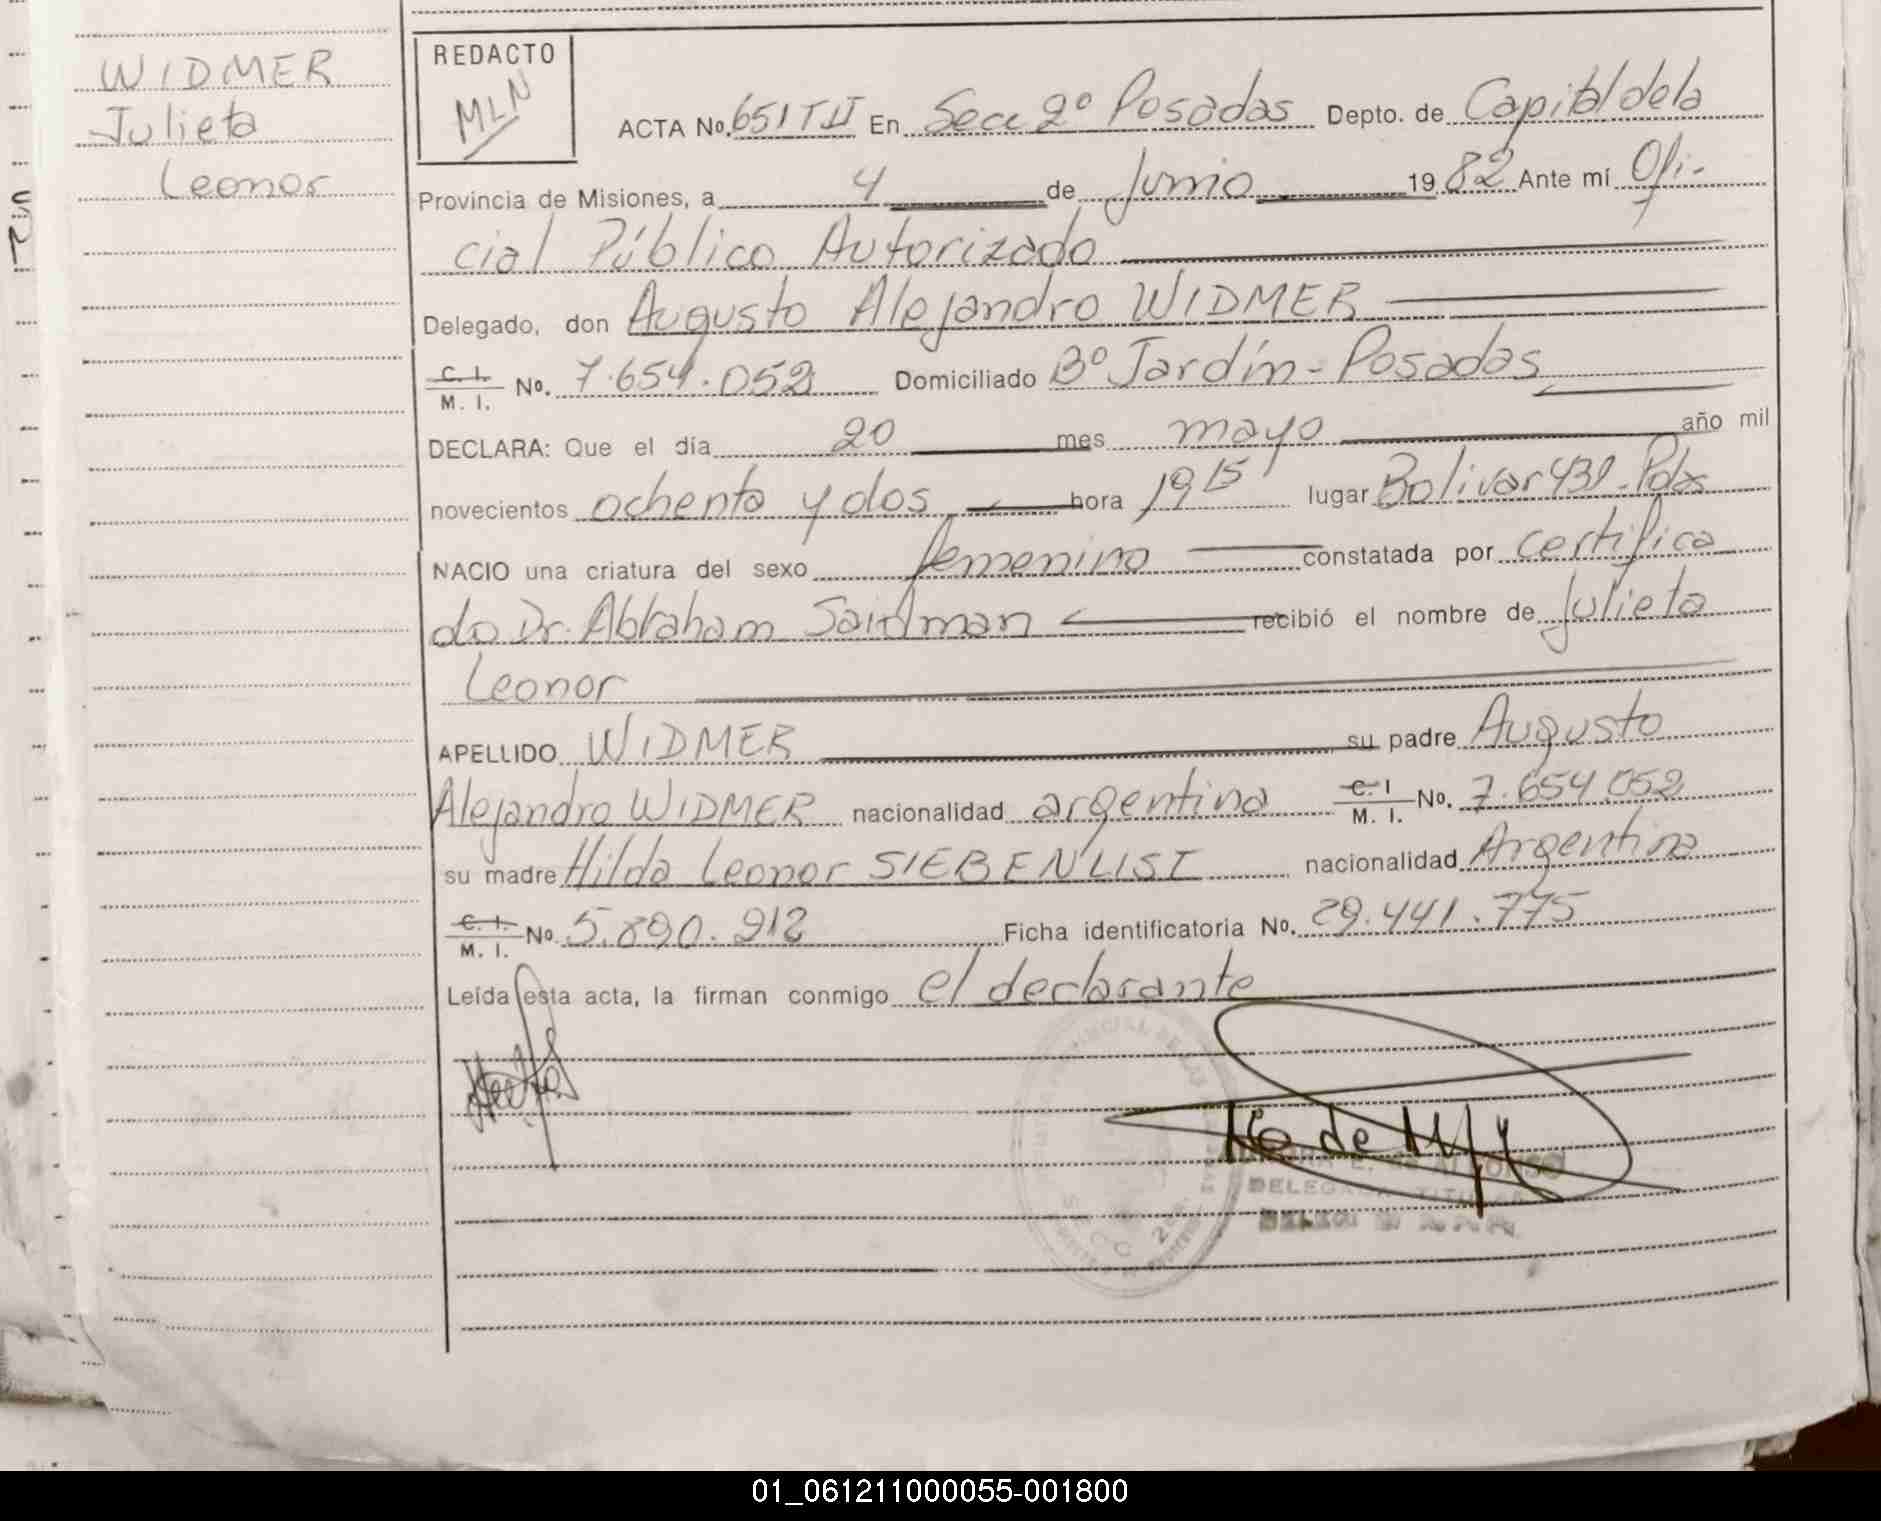 WIDMER
Julieta
Leonor
REDACTO
MLN
ACTA No. 651 TII En Secc 2º Posadas Depto. de Capital dela
Provincia de Misiones, a 4 de Junio 1982 Ante mí Ofi-
cial Público Autorizado
Delegado, don Augusto Alejandro WIDMER
C. I. M. I. No. 7.654.052 Domiciliado Bº Jardín - Posadas
DECLARA: Que el día 20 mes mayo año mil
novecientos ochenta y dos hora 19 15 lugar Bolivar 439 - Pdas
NACIO una criatura del sexo femenino constatada por certifica
do Dr. Abraham recibió el nombre de Julieta
Leonor
APELLIDO WIDMER su padre Augusto
Alejandro WIDMER nacionalidad argentina C. I M. I. No. 7.654.052
su madre Hilda Leonor SIEBENLIST nacionalidad Argentina
C. I. M. I. No 5.890.912 Ficha identificatoria No. 29.441.775
Leída esta acta, la firman conmigo el declarante
DELEGADA TITULAR
01_061211000055-001800